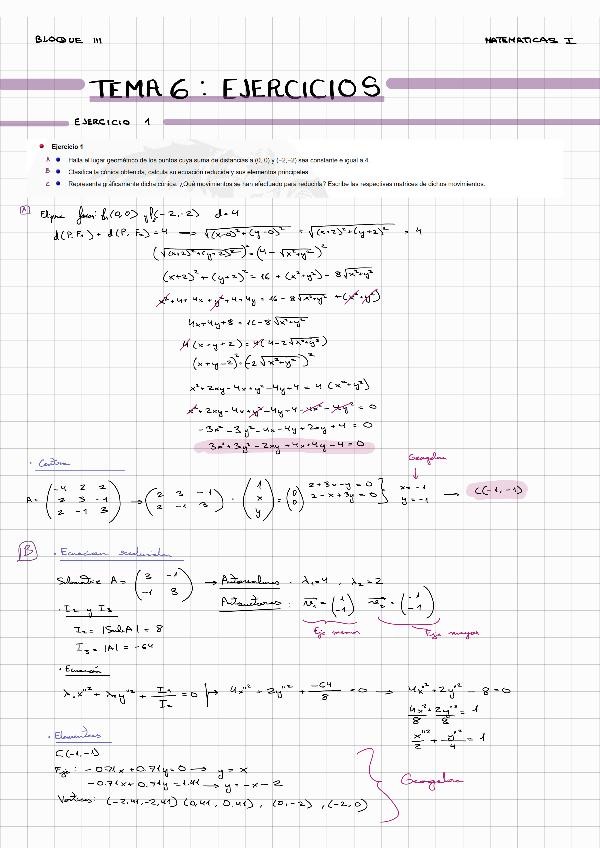 BLOQUE III
MATEMATICAS I
TEMA 6 : EJERCICIOS
EJERCICIO 1
Ejercicio 1
A Halla el lugar geométrico de los puntos cuya suma de distancias a (0, 0) y (−2,−2) sea constante e igual a 4.
B Clasifica la cónica obtenida, calcula su ecuación reducida y sus elementos principales.
C Representa gráficamente dicha cónica. ¿Qué movimientos se han efectuado para reducirla? Escribe las respectivas matrices de dichos movimientos.
A Elipse focos: F₁(0,0) y F₂(-2,-2) d=4
d(P,F₁) + d(P,F₂) = 4 → √(x-0)²+(y-0)² = √(x+2)²+(y+2)² = 4
(√(x+2)²+(y+2)²)² = (4-√x²+y²)²
(x+2)² + (y+2)² = 16 + (x²+y²) - 8√x²+y²
x²+4+4x+y²+4+4y = 16 - 8√x²+y² + (x²+y²)
4x+4y+8 = 16-8√x²+y²
4(x+y+2) = 4(4-2√x²+y²)
(x+y-2)² = (-2√x²+y²)²
x²+2xy-4x+y²-4y+4 = 4(x²+y²)
x²+2xy-4x+y²-4y+4-4x²-4y² = 0
-3x²-3y²-4x-4y+2xy+4 = 0
3x²+3y²-2xy+4x+4y-4=0
· Centro
Geogebra
A = (-4 2 2 / 2 3 -1 / 2 -1 3) → (2 3 -1 / 2 -1 3) · (1 / x / y) = (0 / 0) 2+3x-y=0 / 2-x+3y=0 } x=-1 / y=-1 → C(-1,-1)
B · Ecuacion reducida
Submatriz A = (3 -1 / -1 3) → Autovalores: λ₁=4, λ₂=2
Autovectores: v₁=(1 / -1) v₂=(-1 / -1)
Eje menor Eje mayor
· I₂ y I₃
I₂ = |SubA| = 8
I₃ = |A| = -64
· Ecuación
λ₁x''² + λ₂y''² + I₃/I₂ = 0 → 4x''² + 2y''² + -64/8 = 0 → 4x''²+2y''²-8=0
4x²/8 + 2y''²/8 = 1
x''²/2 + y''²/4 = 1
· Elementos
C(-1,-1)
Eje: -0.71x+0.71y=0 → y=x
-0.71x+0.71y=1.41 → y=-x-2
Geogebra
Vertices: (-2,41,-2,41) (0,41, 0,41), (0,-2), (-2,0)